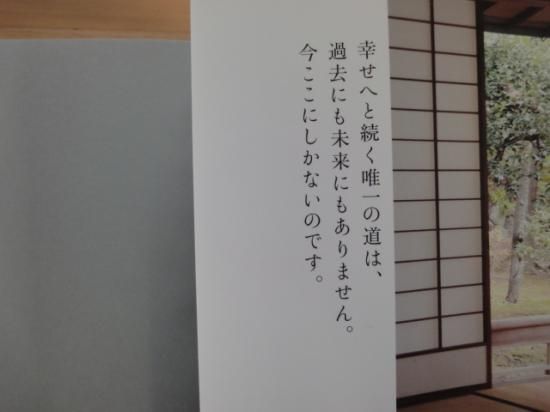 幸せへと続く唯一の道は、
過去にも未来にもありません。
今ここにしかないのです。